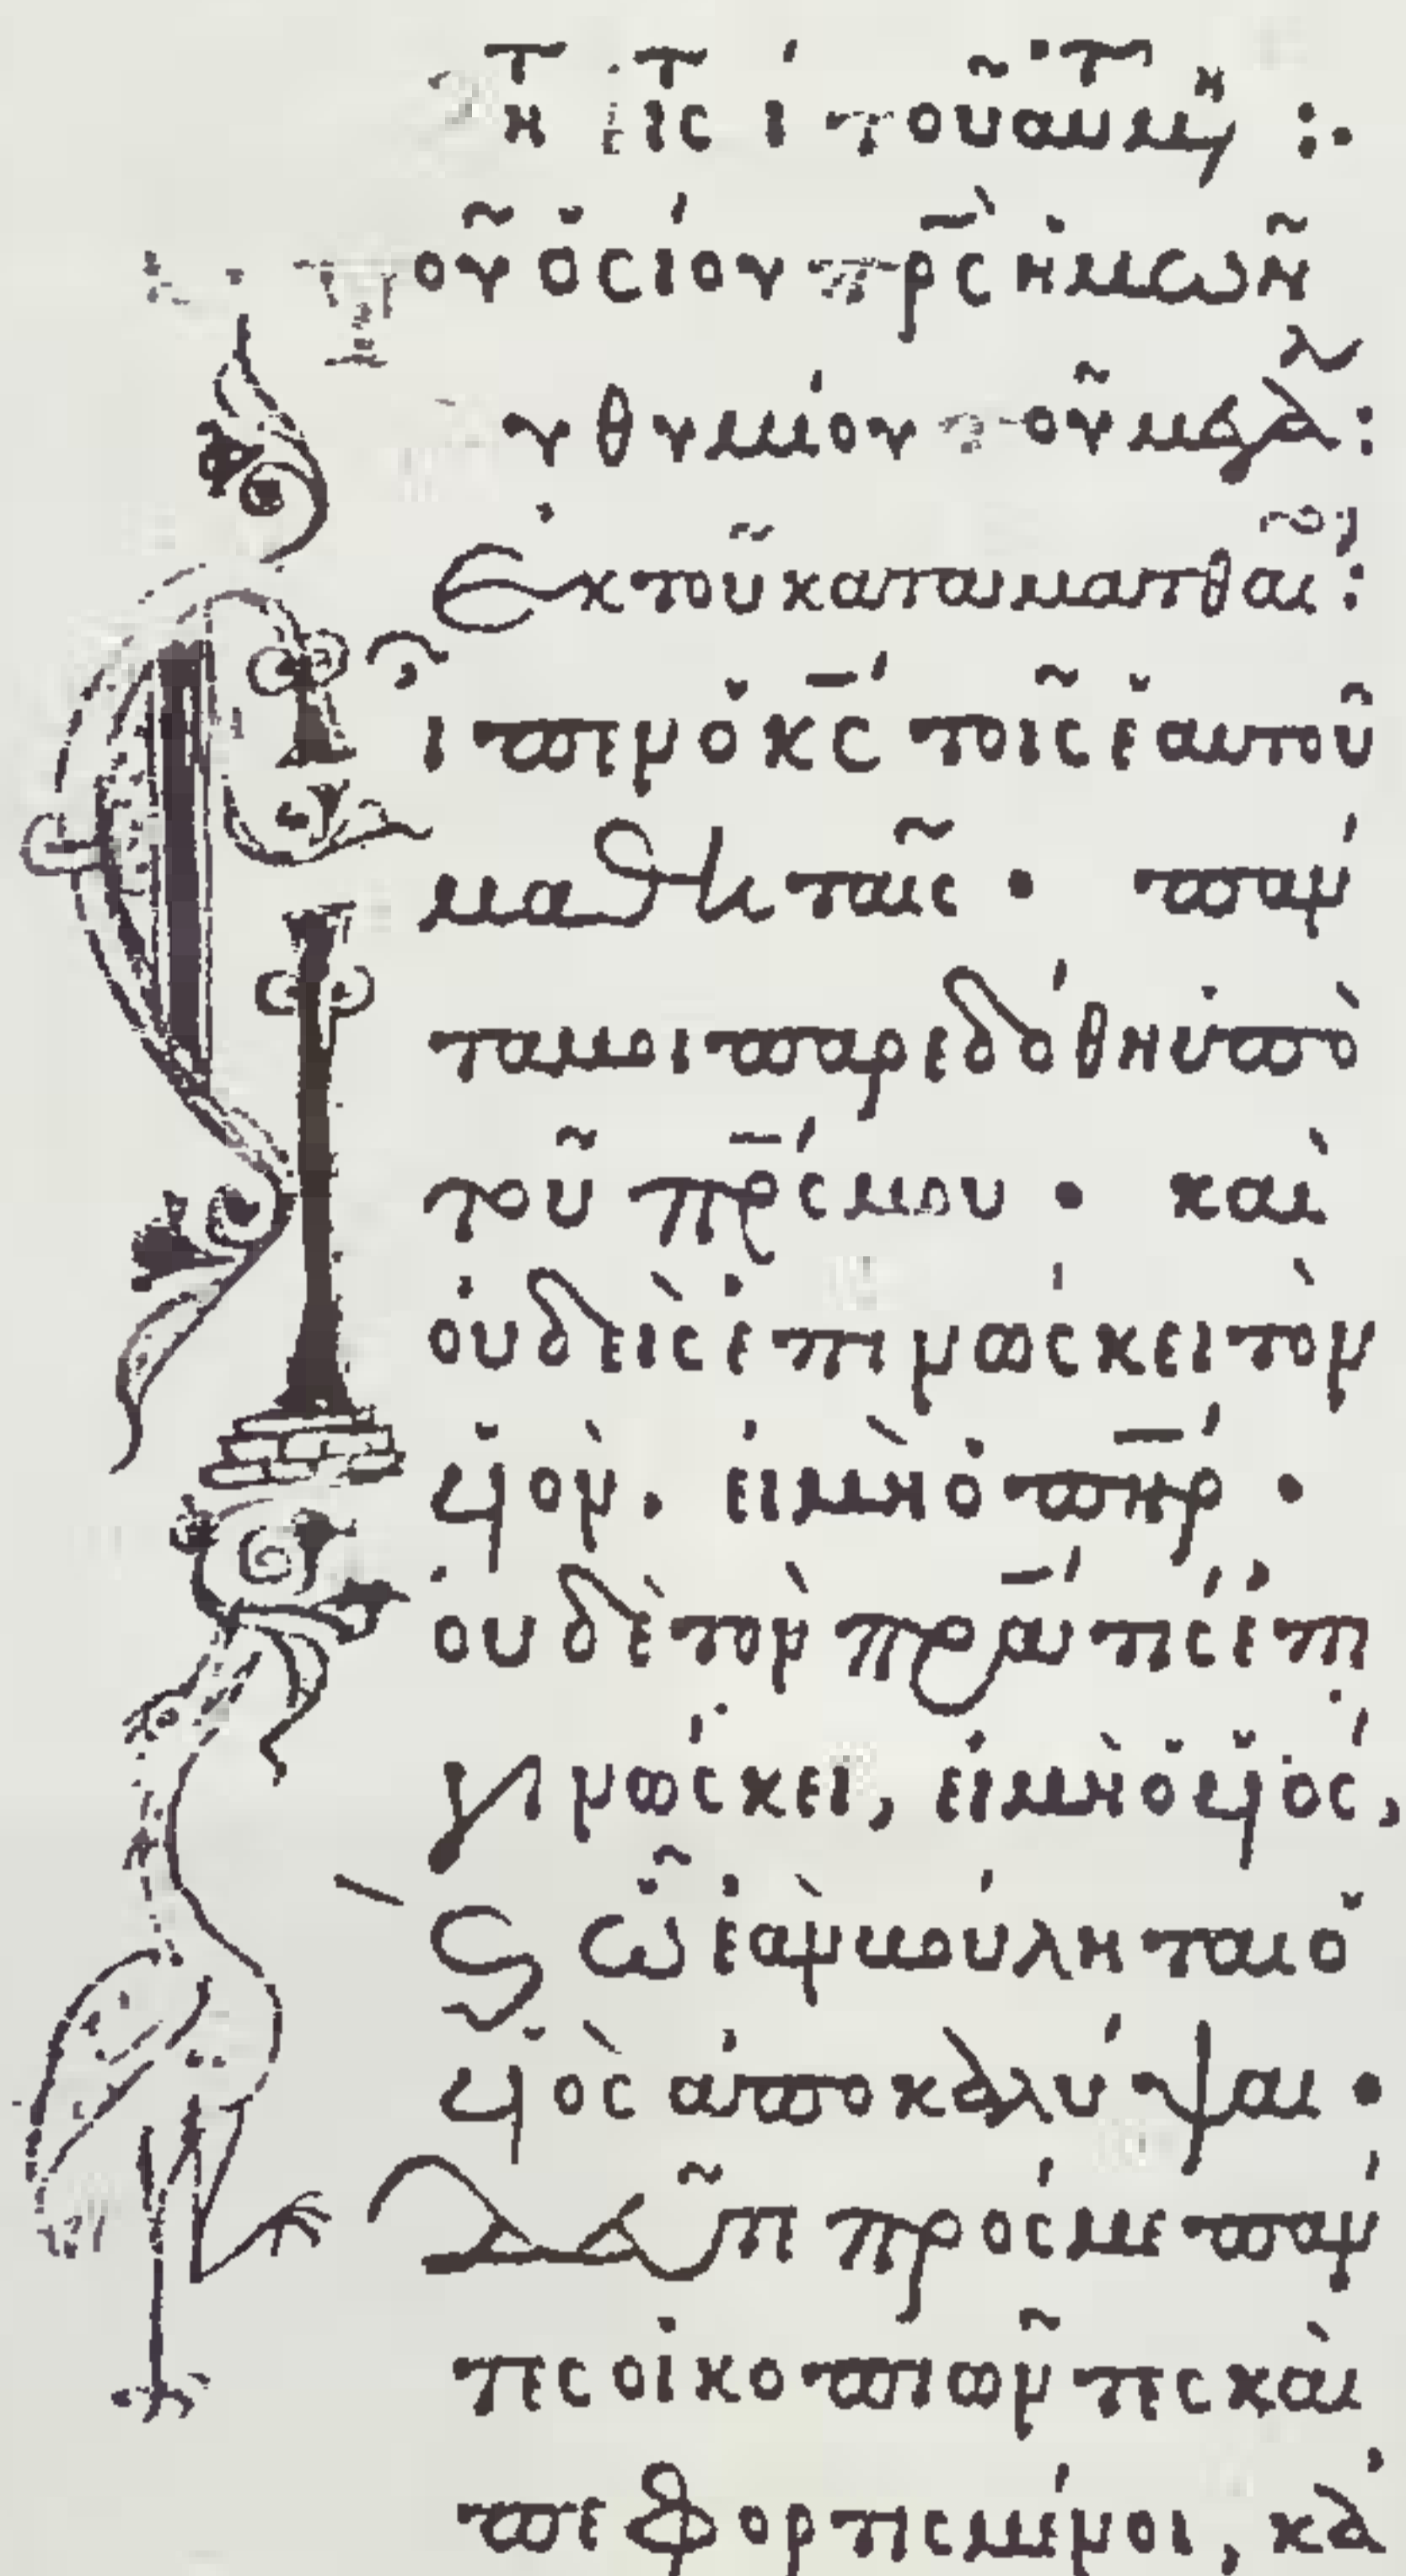 τοῦ ὁσίου πρς ἡμῶν
υθυμίου τοῦ μεγάλ :
Ἐκ τοῦ κατὰ ματθαι :
ιπεν ὁ κς τοῖς ἑαυτοῦ
μαθηταῖς · πάν
τα μοι παρεδόθη ὑπὸ
τοῦ πρς μου · καὶ
οὐδεὶς ἐπιγινώσκει τὸν
υἱὸν . εἰ μὴ ὁ πηρ ·
οὐδὲ τὸν πρα τις ἐπι
γινώσκει , εἰ μὴ ὁ υἱός ,
Ϛ ὧ ἐὰν βούληται ὁ
υἱὸς ἀποκαλύψαι ·
Δεῦτε πρός με πάν
τες οἱ κοπιῶντες καὶ
πεφορτισμένοι , κα